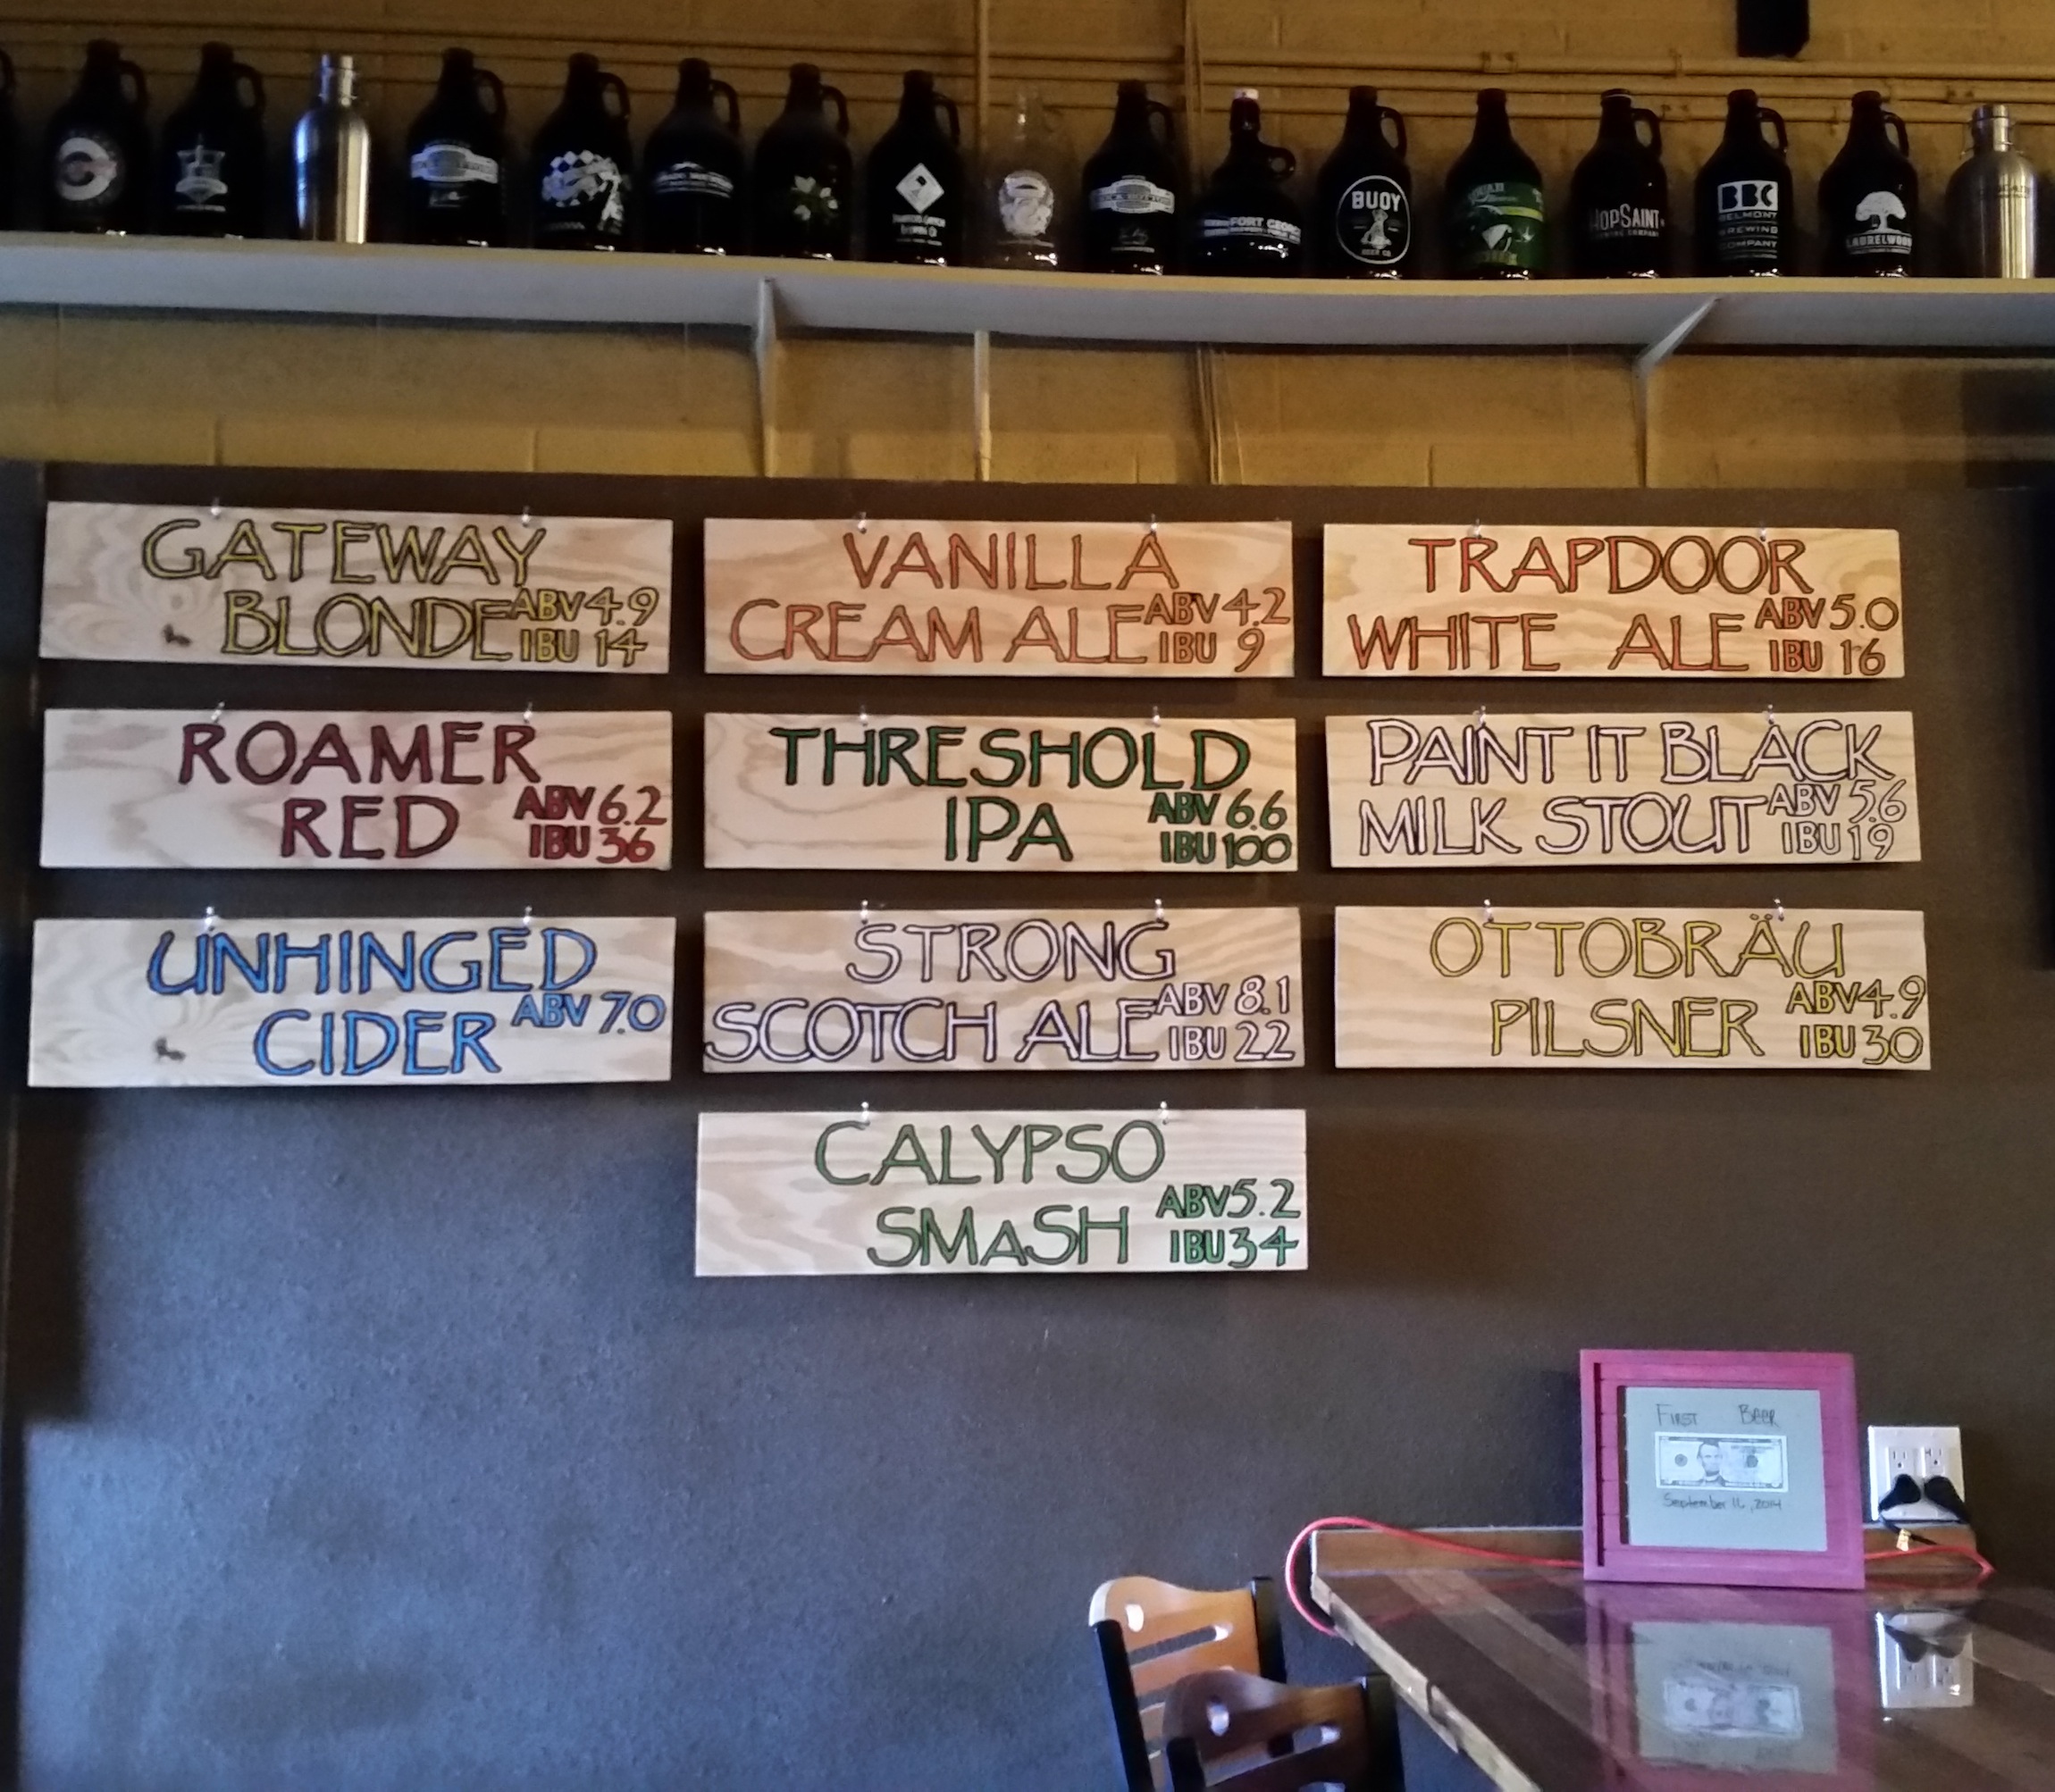 FORT GEORGE
BUOY
BEER CO
HOPSAINT
BREWING COMPANY
BBC
BELMONT
BREWING
COMPANY
LAURELWOOD
GATEWAY
BLONDE
ABV 4.9
IBU 14
VANILLA
CREAM ALE
ABV 4.2
IBU 9
TRAPDOOR
WHITE ALE
ABV 5.0
IBU 16
ROAMER
RED
ABV 6.2
IBU 36
THRESHOLD
IPA
ABV 6.6
IBU 100
PAINT IT BLACK
MILK STOUT
ABV 5.6
IBU 19
UNHINGED
CIDER
ABV 7.0
STRONG
SCOTCH ALE
ABV 8.1
IBU 22
OTTOBRÄU
PILSNER
ABV 4.9
IBU 30
CALYPSO
SMaSH
ABV 5.2
IBU 34
FIRST BEER
September 16, 2014